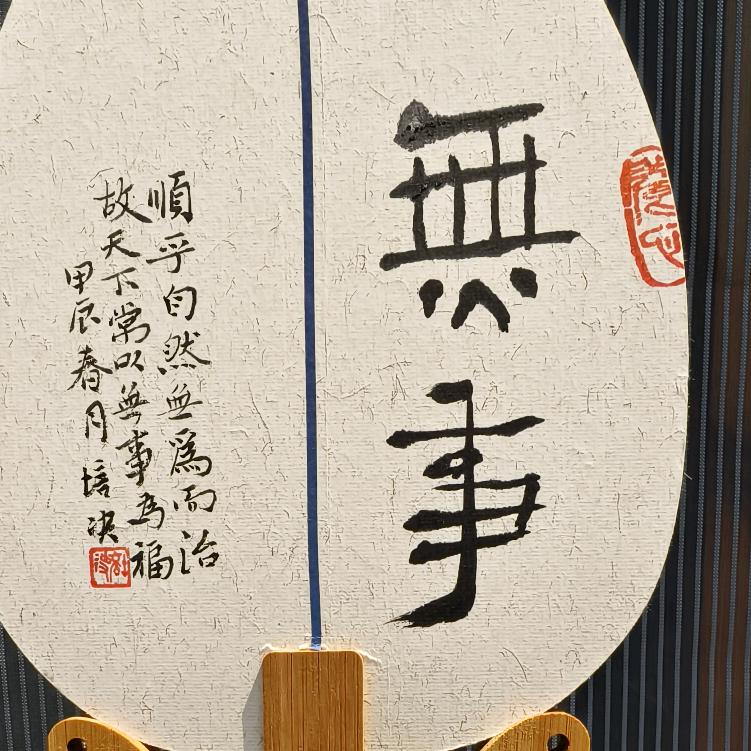 無事
順乎自然無爲而治
故天下常以無事為福
甲辰春月培决